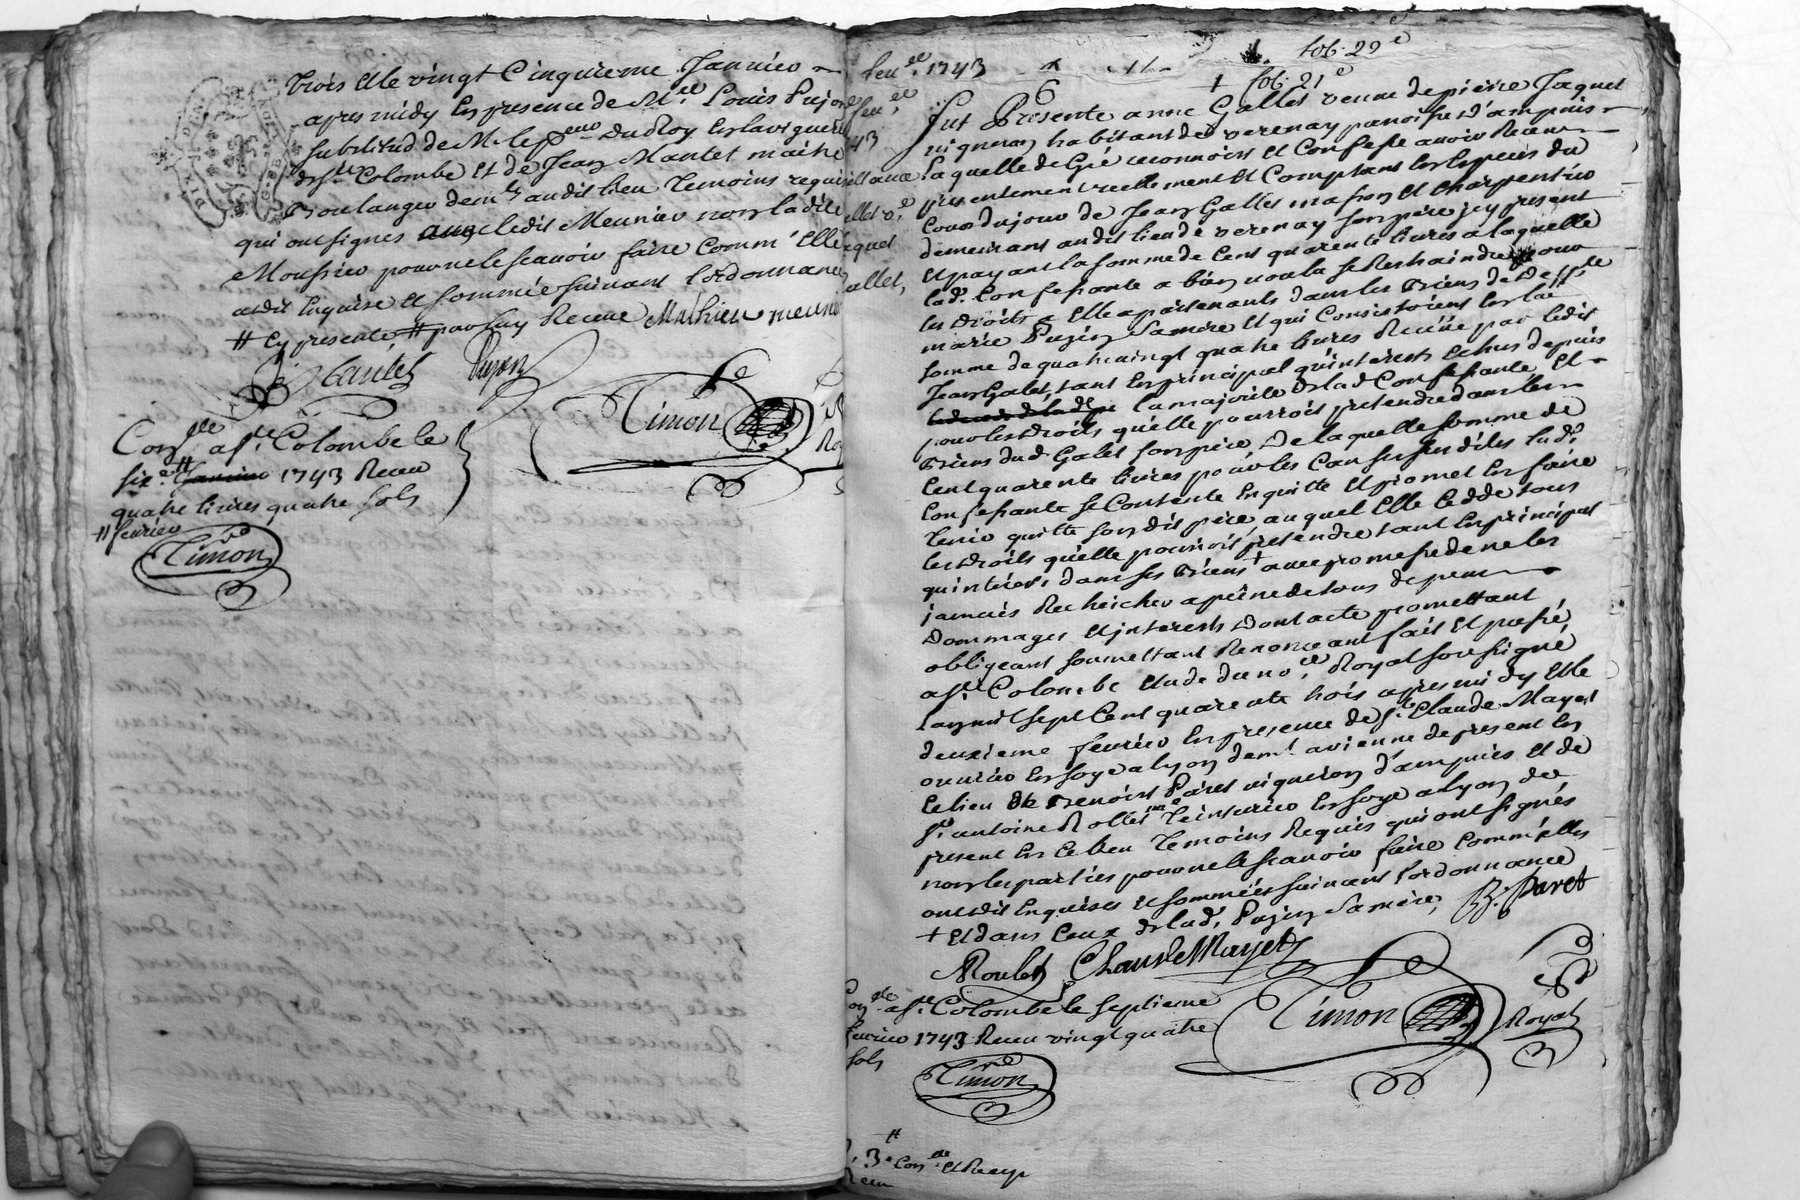 trois et le vingt Cinquieme Janvier
apres midy En presence de Mre. Louis Pujon
substitud de M. le pr. du Roy En la viguerie
de Ste. Colombe et de Jean Mantet maitre
Boulanger demts. audit lieu temoins requis
qui ont signes avec ledit Meunier non ladite
Mousier pour ne le scavoir faire Comm'Elle
a dit Enquise et sommée suivant l'ordonnance
# Cy presente # par luy Receue Mathieu meunie
Mantet Pujon
Timon
Con.lle a Ste. Colombe le
six.e # Janvier 1743 Receu
quatre livres quatre sols
# fevrier
Timon
fevr. 1743
fol. 22e
6
+ fol. 21e
Fut Presente anne Gallet veuve de pierre Jaquet
vigneron habitante de verenay paroisse d'ampuis
Laquelle de Gré reconnoist et Confesse avoir Receu
presentement reellement et Comptant En Especes du
Cours du jour de Jean Gallet masson et charpentier
demeurant audit lieu de verenay son pere jcy present
Et payant la somme de Cent quarente livres a laquelle
lad. Confessante a bien voulu se Restraindre pour
les droits a Elle apartenants dans les Biens de deffte
marie Pujin sa mere et qui Consistoient En la
somme de quatre vingt quatre livres Receüe par ledit
Jean Galet, tant En principal qu'interests Echus depuis
la majorité de lad. Confessante Et
pour les droits qu'elle pourroit pretendre dans les
Biens dud. Galet son pere, De laquelle somme de
Cent quarente livres pour les Causes susdites lad.
Confessante se Contente En quitte et promet En faire
tenir quitte son dit pere, auquel Elle Cedde tous
les droits qu'elle pourroit pretendre tant En principal
qu'interets dans ses Biens + avec promesse de ne les
jamais Rechercher a peine de tous depens
Dommages et jnterests Dont acte promettant
obligeant soumettant Renonceant fait et passé
a Ste. Colombe Etude du nore. Royal soussigné
L'an mil sept Cent quarente trois apres midy et le
deuxieme fevrier En presence de sr. Claude Mayet
ouvrier En soye a lyon demt. a vienne de present En
Ce lieu de Benoist Paret vigneron d'ampuis et de
sr. antoine Rollet teinturier En soye a lyon de
present En Ce lieu temoins Requis qui ont signés
non les parties pour ne le scavoir faire Comm'elles
ont dit Enquises et sommées suivant l'ordonnance
+ Et dans Ceux de lad. Pujin sa mere, B. Paret
Roulet Claude Mayet
Timon
Royal
Con.lle a Ste. Colombe le septieme
fevrier 1743 Receu vingt quatre
sols
Timon
3.# Con.lle et Recep